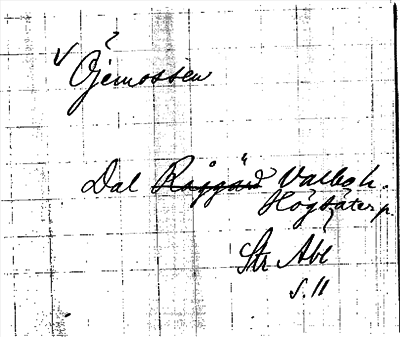 √ Öjemossen
Dal Valbo h.
Högsäter p.
Str Abl
s. 11